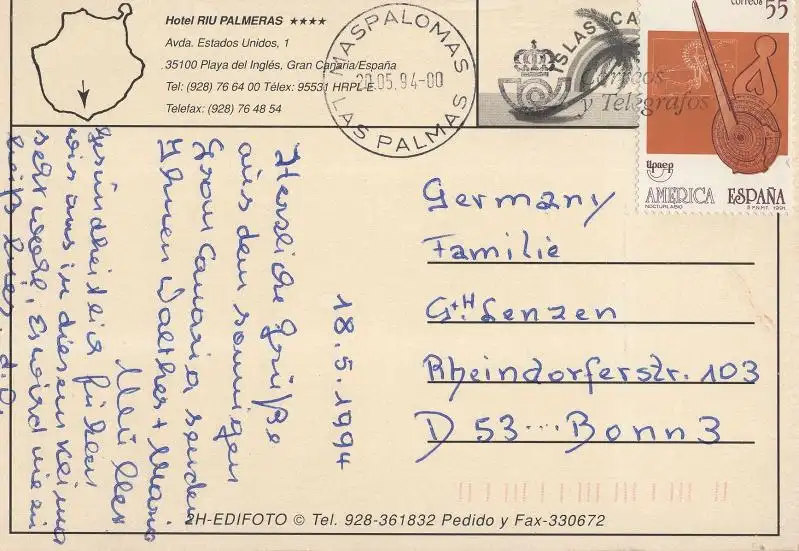 Hotel RIU PALMERAS ★★★★
Avda. Estados Unidos, 1
35100 Playa del Inglés, Gran Canaria/España
Tel: (928) 76 64 00 Télex: 95531 HRPL-E
Telefax: (928) 76 48 54
MASPALOMAS
20.05.94-00
LAS PALMAS
ISLAS CA
Correos
y Telégrafos
correos 55
upaep
AMERICA ESPAÑA
NOCTURLABIO F.N.M.T. 1991
18.5.1994
Herzliche Grüße
aus dem sonnigen
Gran Canaria senden
Ihnen Walther + Maria
Müller
Gesundheitlich fühlen
wir uns in diesem Klima
sehr wohl. Es wird nie zu
heiß hier. d.O.
Germany
Familie
G.+H. Lenzen
Rheindorferstr. 103
D 53 ... Bonn 3
2H-EDIFOTO © Tel. 928-361832 Pedido y Fax-330672